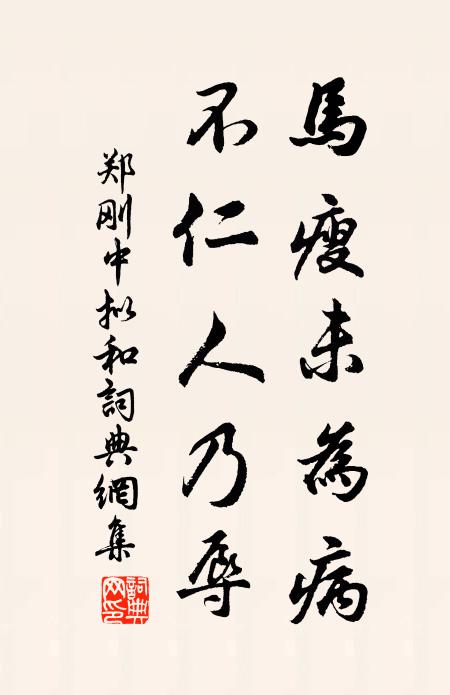 馬瘦未為病
不仁人乃辱
郑刚中拟和詞典網集
詞典
網印